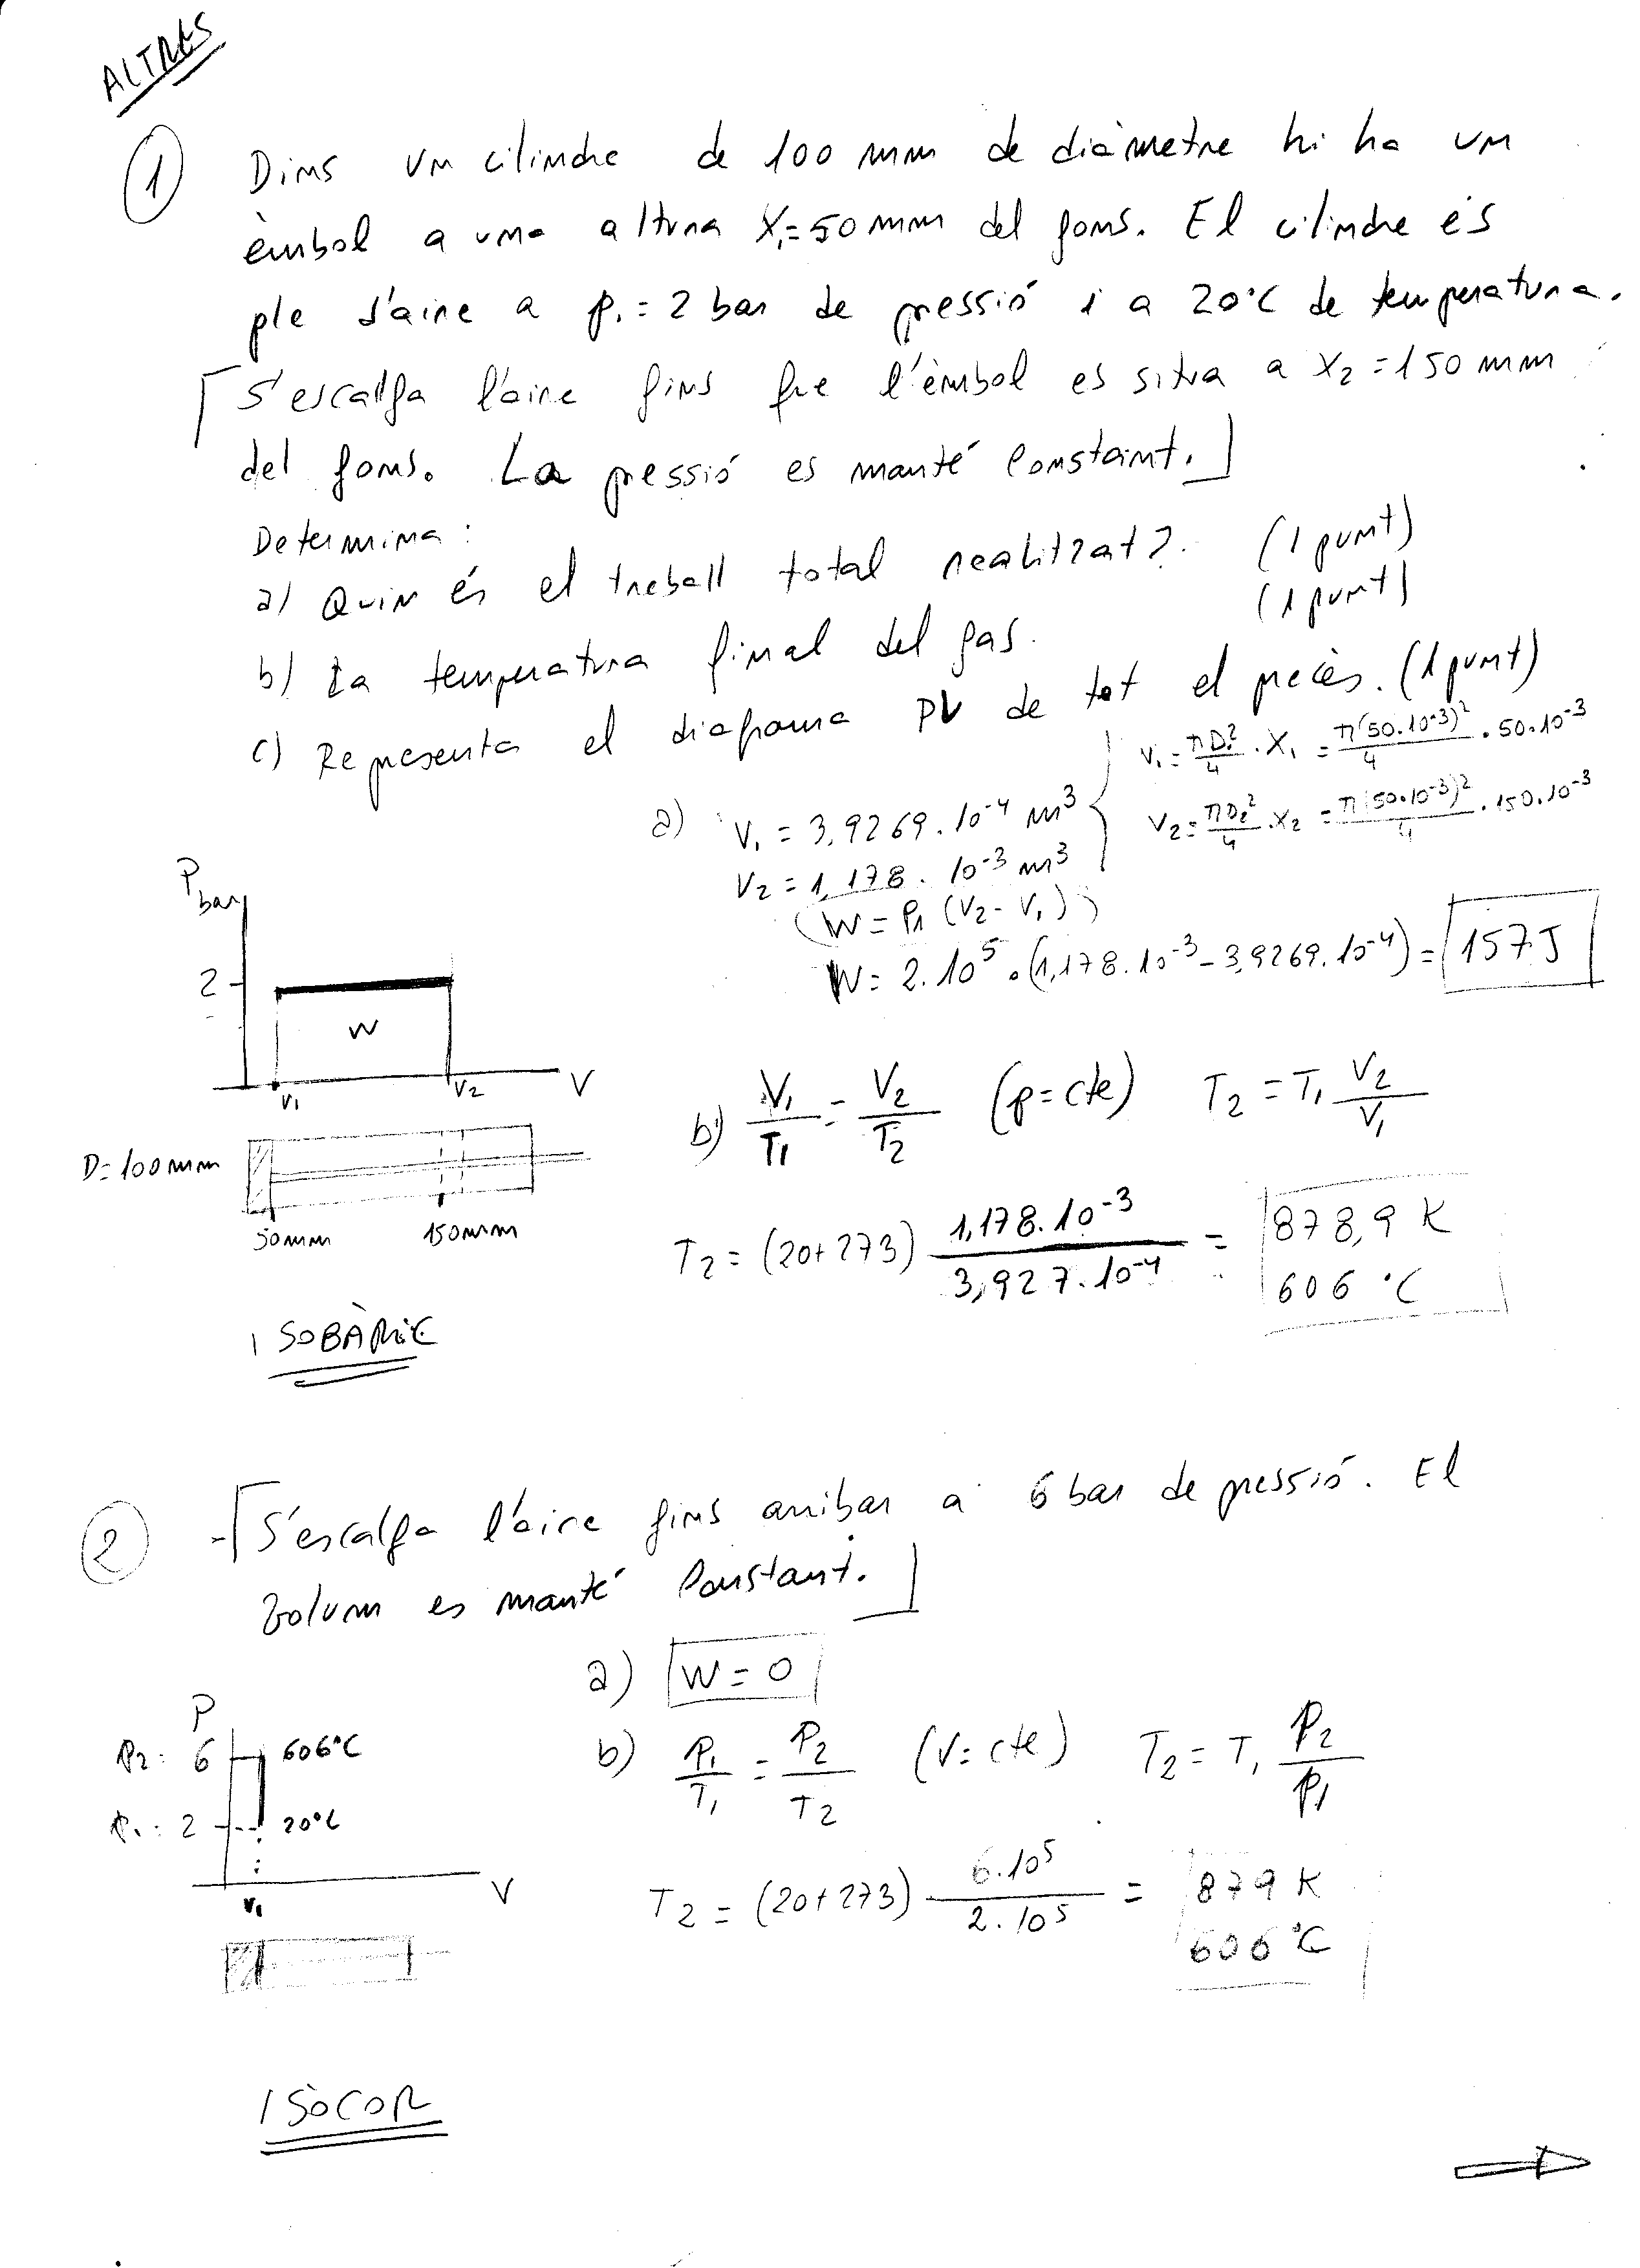 ALTRES
1 Dins un cilindre de 100 mm de diàmetre hi ha un
èmbol a una altura X₁=50mm del fons. El cilindre és
ple d'aire a p₁=2 bar de pressió i a 20°C de temperatura.
⌈S'escalfa l'aire fins que l'èmbol es situa a X₂=150mm
del fons. La pressió es manté constant.⌋
Determina:
a) Quin és el treball total realitzat?. (1 punt)
b) La temperatura final del gas. (1 punt)
c) Representa el diagrama PV de tot el procés. (1 punt)
V₁ = πD₁²/4 · X₁ = π(50·10⁻³)²/4 · 50·10⁻³
V₂ = πD₂²/4 · X₂ = π(50·10⁻³)²/4 · 150·10⁻³
a) V₁ = 3,9269·10⁻⁴ m³
V₂ = 1,178·10⁻³ m³
(W = P₁ (V₂ - V₁))
W = 2·10⁵ · (1,178·10⁻³ - 3,9269·10⁻⁴) = 157 J
P bar
2
W
V₁ V₂ V
D=100mm
50mm 150mm
b) V₁/T₁ = V₂/T₂ (p=cte) T₂ = T₁ V₂/V₁
T₂ = (20+273) 1,178·10⁻³/3,927·10⁻⁴ = 878,9 K
606 °C
ISOBÀRIC
2 -⌈S'escalfa l'aire fins arribar a 6 bar de pressió. El
volum es manté constant.⌋
a) W = 0
P
P₂: 6 606°C
P₁: 2 20°C
V₁ V
b) P₁/T₁ = P₂/T₂ (V=cte) T₂ = T₁ P₂/P₁
T₂ = (20+273) 6·10⁵/2·10⁵ = 879 K
606 °C
ISÒCOR